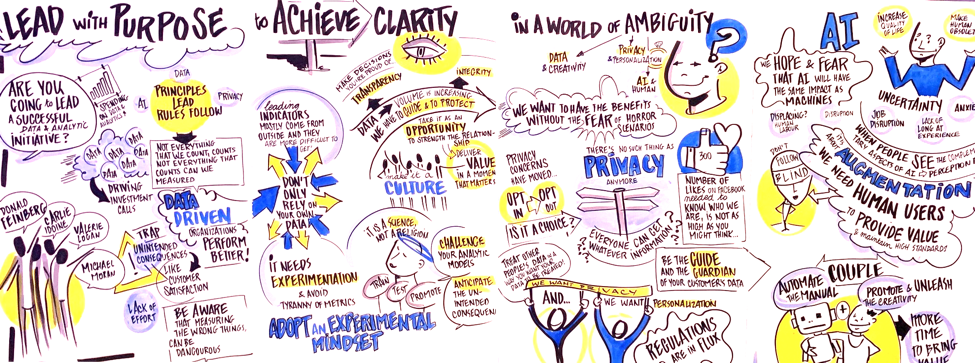 LEAD WITH PURPOSE to ACHIEVE CLARITY
IN A WORLD OF AMBIGUITY
ARE YOU
GOING to LEAD
A SUCCESSFUL
DATA & ANALYTIC
INITIATIVE?
SPENDING
DATA
AI
PRINCIPLES
LEAD
RULES FOLLOW
PRIVACY
DATA
DATA
DATA
DATA
DATA
DRIVING
INVESTMENT
CALLS
NOT EVERYTHING
THAT WE COUNT, COUNTS
NOT EVERYTHING THAT
COUNTS CAN WE
MEASURED
DATA
DRIVEN
ORGANIZATIONS
PERFORM
BETTER!
DONALD
FEINBERG
CARLIE
IDOINE
VALERIE
LOGAN
MICHAEL
MORAN
TRAP
UNINTENDED
CONSEQUENCES
LIKE
CUSTOMER
SATISFACTION
LACK OF
EFFORT
BE AWARE
THAT MEASURING
THE WRONG THINGS,
CAN BE
DANGOUROUS
leading
INDICATORS
MOSTLY COME FROM
OUTSIDE AND THEY
ARE MORE DIFFICULT TO
GET
DON'T
ONLY
RELY ON
YOUR OWN
DATA
IT NEEDS
EXPERIMENTATION
& AVOID
TYRANNY OF METRICS
ADOPT AN EXPERIMENTAL
MINDSET
MAKE DECISIONS
YOU'RE PROUD OF
TRANSPARANCY
INTEGRITY
DATA VOLUME IF INCREASING
WE HAVE to GUIDE & TO PROTECT
TAKE IT AS AN
OPPORTUNITY
TO STRENGTH THE RELATION-
SHIP
DELIVER
VALUE
IN A MOMENT
THAT MATTERS
make it a
CULTURE
IT IS A SCIENCE,
NOT A RELIGION
TRAIN
TEST
PROMOTE
CHALLENGE
YOUR ANALYTIC
MODELS
ANTICIPATE
THE UN-
INTENDED
CONSEQUEN
DATA
& CREATIVITY
PRIVACY
& PERSONALIZATION
AI &
HUMAN
?
WE WANT to HAVE THE BENEFITS
WITHOUT THE FEAR OF HORROR
SCENARIOS
PRIVACY
CONCERNS
HAVE MOVED...
OPT
IN
OPT
OUT
IS IT A CHOICE?
THERE'S NO SUCH THING AS
PRIVACY
ANYMORE
EVERYONE CAN GET
WHATEVER INFORMATION
300
NUMBER OF
LIKES ON FACEBOOK
needed to
KNOW WHO WE
ARE, IS NOT AS
HIGH AS YOU
MIGHT THINK...
TREAT OTHER
PEOPLE'S DATA
BE THE GUIDE
AND THE
GUARDIAN
OF YOUR CUSTOMER'S DATA
WE WANT PRIVACY
AND...
WE WANT
PERSONALIZATION
REGULATIONS
ARE IN FLUX
AI
WE HOPE & FEAR
THAT AI WILL HAVE
THE SAME IMPACT AS
MACHINES
INCREASE
QUALITY
OF LIFE
MAKE
HUMAN
OBSOLE
UNCERTAINTY
ANXIE
DISPLACING?
HUMAN
LABOUR
DISRUPTION
JOB
DISRUPTION
LACK OF
LONG AT EXPERIENCE
DON'T
FOLLOW
BLIND
WHEN PEOPLE SEE THE COMPLEM
ASPECTS OF AI
PERCEPTION
AUGMENTATION
WE NEED HUMAN USERS
TO PROVIDE VALUE
& maintain HIGH STANDARDS
COUPLE
AUTOMATE
THE MANUAL
+
PROMOTE & UNLEASH
THE CREATIVITY
MORE
TIME TO
BRING
VALUE